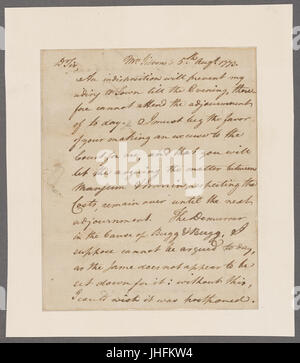 Dr Sir, Mt Vernon 5th Augt 1773.
An indisposition will prevent my
riding to Town till the Evening, there
fore cannot attend the adjournment
of to day. I must beg the favor
of your making an excuse to the
Court for me, and that you will
let the arguing the matter between
Mangum &
Costs remain over until the next
adjournment. The Demurrer
in the Cause of Bugg & Bugg, I
suppose cannot be argued to day,
as the same does not appear to be
set down for it; without this,
I could wish it was postponed.
alamy stock photo
Image ID: JHFKW4
www.alamy.com